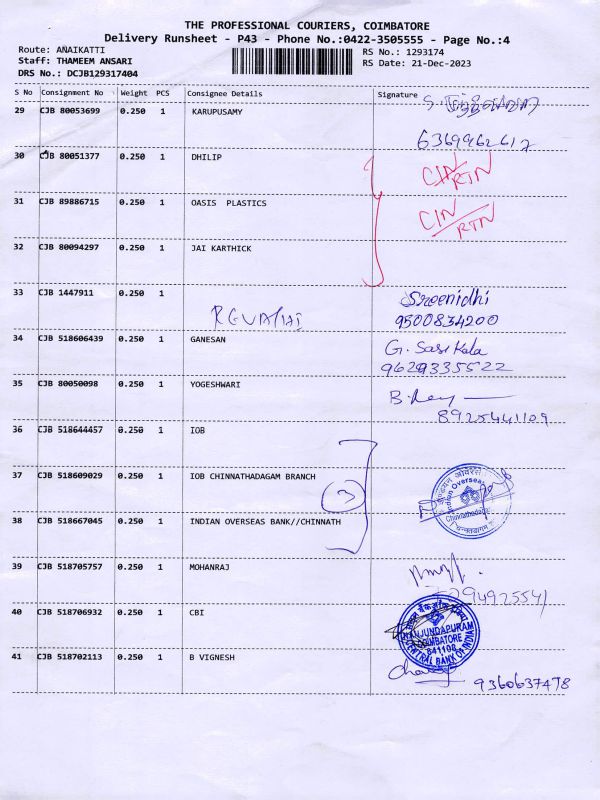 THE PROFESSIONAL COURIERS, COIMBATORE
Delivery Runsheet - P43 - Phone No.:0422-3505555 - Page No.:4
Route: ANAIKATTI
RS No.: 1293174
Staff: THAMEEM ANSARI
RS Date: 21-Dec-2023
DRS No.: DCJB129317404
S No Consignment No Weight PCS Consignee Details Signature
29 CJB 80053699 0.250 1 KARUPUSAMY
6369962617
30 CJB 80051377 0.250 1 DHILIP CIN/RTN
31 CJB 89886715 0.250 1 OASIS PLASTICS CIN/RTN
32 CJB 80094297 0.250 1 JAI KARTHICK
33 CJB 1447911 0.250 1 Sreenidhi
REVATHI 9500834200
34 CJB 518606439 0.250 1 GANESAN G. Sasi Kala
9629335522
35 CJB 80050098 0.250 1 YOGESHWARI
8925441109
36 CJB 518644457 0.250 1 IOB
37 CJB 518609029 0.250 1 IOB CHINNATHADAGAM BRANCH
3
Indian Overseas
Chinnathadagam
38 CJB 518667045 0.250 1 INDIAN OVERSEAS BANK//CHINNATH
39 CJB 518705757 0.250 1 MOHANRAJ
40 CJB 518706932 0.250 1 CBI
NANJUNDAPURAM
COIMBATORE
641108
CENTRAL BANK OF INDIA
41 CJB 518702113 0.250 1 B VIGNESH
9360637478